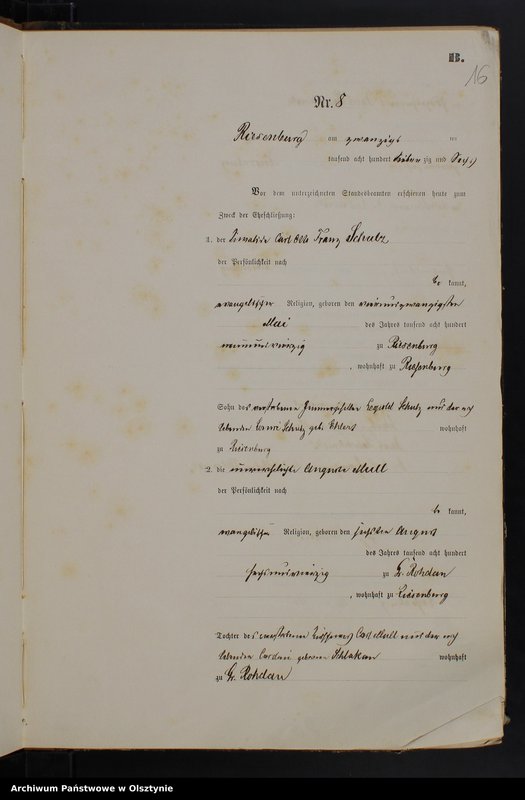 B.
16
Nr. 8
Riesenburg am zwanzigst
tausend acht hundert sieben zig und sechs
Vor dem unterzeichneten Standesbeamten erschienen heute zum
Zweck der Eheschließung:
1. der Invalide Carl Otto Franz Schulz
der Persönlichkeit nach
be kannt,
evangelischer Religion, geboren den vierundzwanzigsten
Mai des Jahres tausend acht hundert
neunundvierzig zu Riesenburg
, wohnhaft zu Riesenburg
Sohn des verstorbenen Leopold Schulz und der noch
lebenden Schulz geb. Ehlert wohnhaft
zu Riesenburg
2. die unverehelichte Auguste Mull
der Persönlichkeit nach
be kannt,
evangelischer Religion, geboren den sechsten August
des Jahres tausend acht hundert
sechsundvierzig zu Gr. Rohdau
, wohnhaft zu Riesenburg
Tochter des verstorbenen Carl Mull und der noch
lebenden geborenen wohnhaft
zu Gr. Rohdau
Archiwum Państwowe w Olsztynie